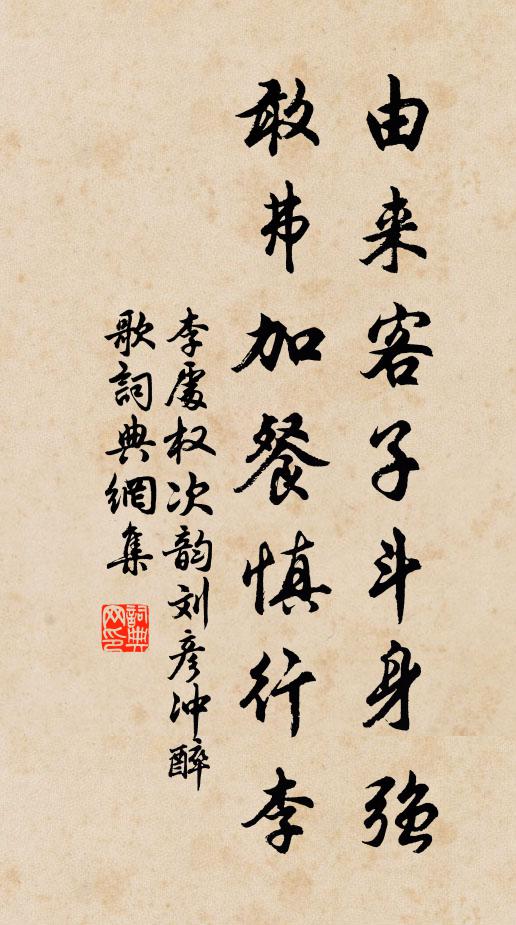 由来客子斗身强
敢弗加餐慎行李
李處权次韵刘彦冲醉
歌詞典網集
詞典
网印